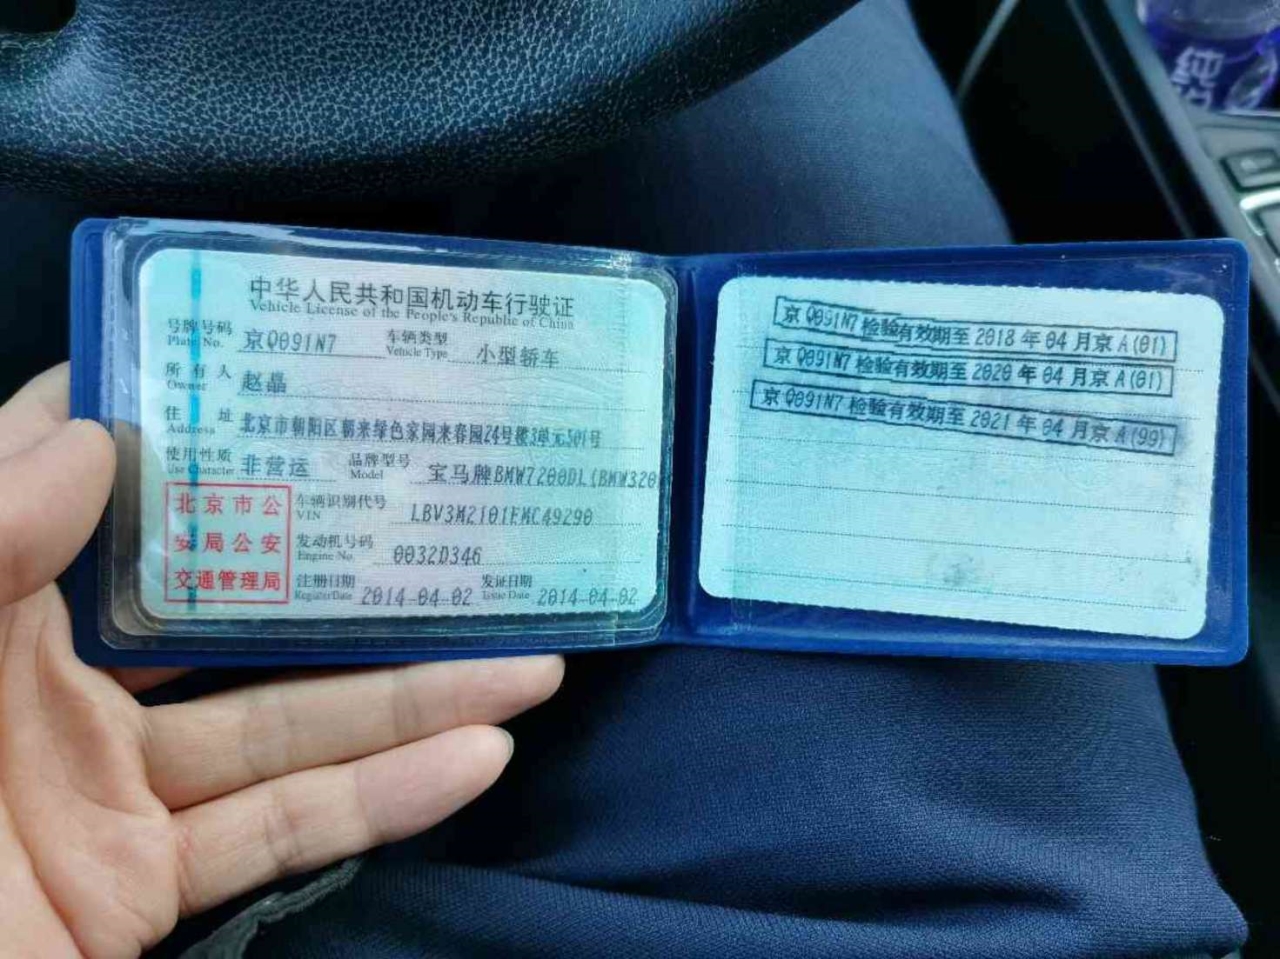 中华人民共和国机动车行驶证
Vehicle License of the People's Republic of China
号牌号码 京Q091N7 车辆类型 小型轿车
Plate No. Vehicle Type
所有人 赵晶
Owner
住址 北京市朝阳区朝来绿色家园来春园24号楼3单元501号
Address
使用性质 非营运 品牌型号 宝马牌BMW7200DL(BMW320
Use Character Model
北京市公
安局公安
交通管理局
车辆识别代号 LBV3M2101EMC49290
VIN
发动机号码 0032D346
Engine No.
注册日期 2014-04-02 发证日期 2014-04-02
Register Date Issue Date
京Q091N7检验有效期至2018年04月京A(01)
京Q091N7检验有效期至2020年04月京A(01)
京Q091N7检验有效期至2021年04月京A(99)
纯